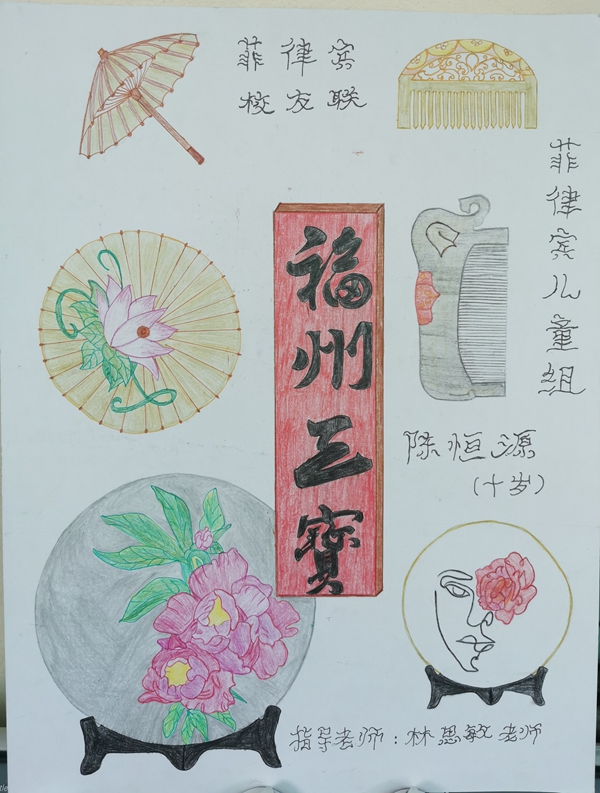 菲律宾
校友联
菲律宾儿童组
福州三寳
陈恒源
(十岁)
指导老师：林思敏老师